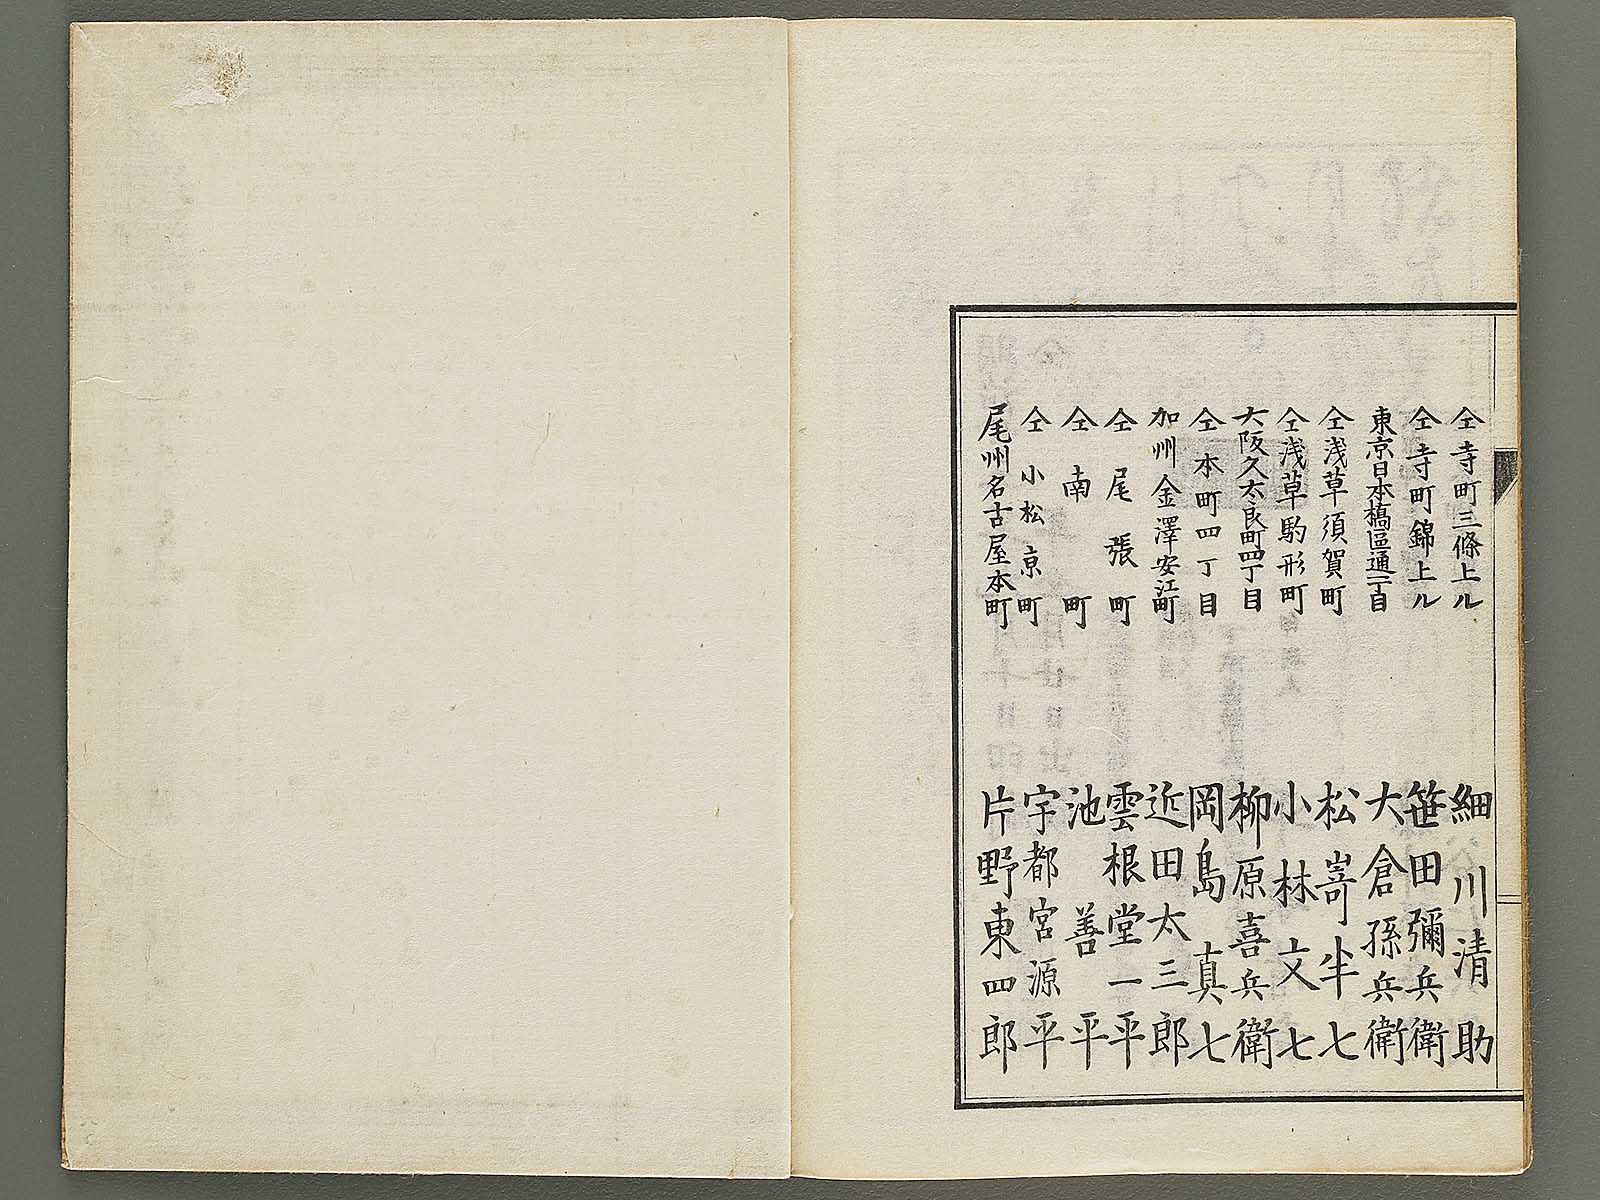 仝寺町三條上ル 細川清助
仝寺町錦上ル 笹田彌兵衛
東京日本橋區通一丁目 大倉孫兵衛
仝浅草須賀町 松嵜半七
仝浅草駒形町 小林文七
大阪久太良町四丁目 柳原喜兵衛
仝本町四丁目 岡島真七
加州金澤安江町 近田太三郎
仝尾張町 雲根堂一平
仝南町 池善平
仝小松京町 宇都宮源平
尾州名古屋本町 片野東四郎